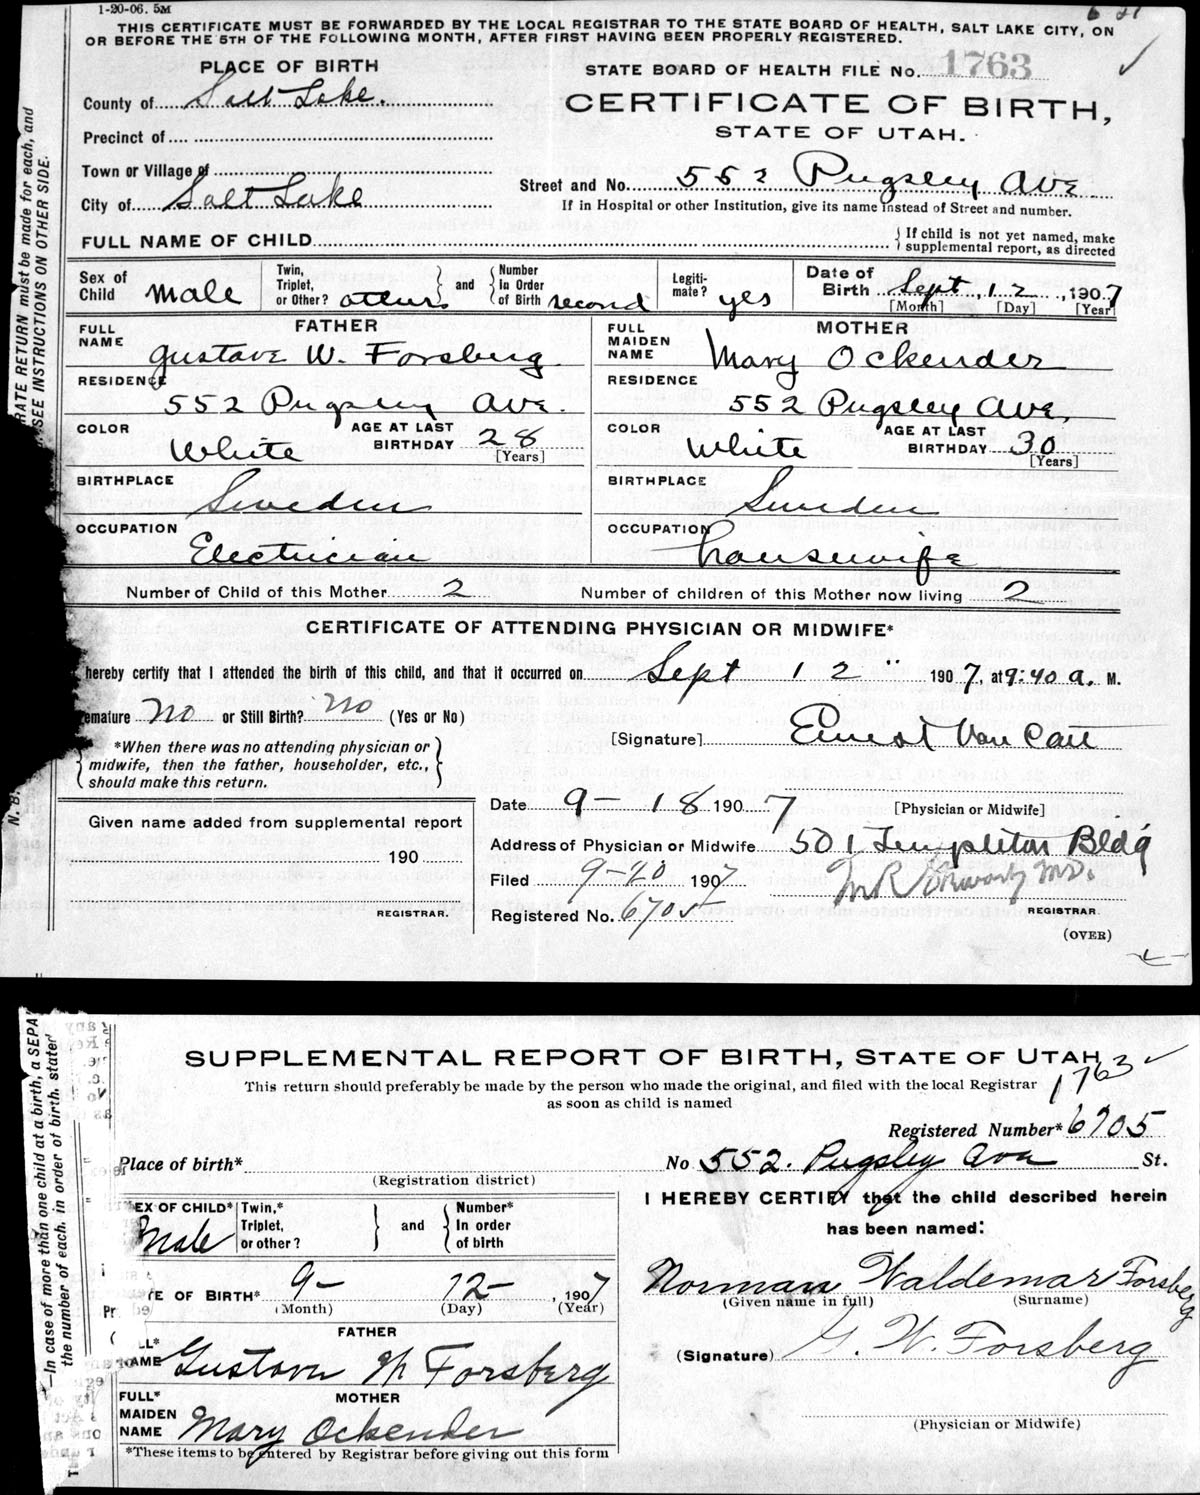 1-20-06. 5M
THIS CERTIFICATE MUST BE FORWARDED BY THE LOCAL REGISTRAR TO THE STATE BOARD OF HEALTH, SALT LAKE CITY, ON
OR BEFORE THE 5TH OF THE FOLLOWING MONTH, AFTER FIRST HAVING BEEN PROPERLY REGISTERED.
PLACE OF BIRTH
STATE BOARD OF HEALTH FILE No. 1763
County of Salt Lake.
CERTIFICATE OF BIRTH,
STATE OF UTAH.
Precinct of
Town or Village of
Street and No. 552 Pugsley Ave
City of Salt Lake
If in Hospital or other Institution, give its name instead of Street and number.
FULL NAME OF CHILD
If child is not yet named, make
supplemental report, as directed
Sex of Child Male
Twin, Triplet, or Other? and Number In Order of Birth second
Legiti-mate? yes
Date of Birth Sept, 12, 1907
[Month] [Day] [Year]
FATHER
FULL NAME Gustave W. Forsberg
MOTHER
FULL MAIDEN NAME Mary Ockender
RESIDENCE 552 Pugsley Ave.
RESIDENCE 552 Pugsley Ave,
COLOR White AGE AT LAST BIRTHDAY 28 [Years]
COLOR White AGE AT LAST BIRTHDAY 30 [Years]
BIRTHPLACE Sweden
BIRTHPLACE Sweden
OCCUPATION Electrician
OCCUPATION housewife
Number of Child of this Mother 2 Number of children of this Mother now living 2
CERTIFICATE OF ATTENDING PHYSICIAN OR MIDWIFE*
hereby certify that I attended the birth of this child, and that it occurred on Sept 12" 1907, at 9:40 a. M.
emature no or Still Birth? no (Yes or No)
[Signature] Ernest Van Cott
*When there was no attending physician or
midwife, then the father, householder, etc.,
should make this return.
Date 9-18 1907 [Physician or Midwife]
Given name added from supplemental report
Address of Physician or Midwife 501 Templeton Bldg
190
Filed 9-20 1907
M.D.
REGISTRAR.
Registered No. 6705
REGISTRAR.
(OVER)
RATE RETURN must be made for each, and
SEE INSTRUCTIONS ON OTHER SIDE.
N. B.
SUPPLEMENTAL REPORT OF BIRTH, STATE OF UTAH
1763
This return should preferably be made by the person who made the original, and filed with the local Registrar
as soon as child is named
Registered Number* 6705
Place of birth*
(Registration district)
No 552. Pugsley Ave St.
EX OF CHILD* Male
Twin,* Triplet, or other? and Number* In order of birth
I HEREBY CERTIFY that the child described herein
has been named:
TE OF BIRTH* 9- 12-, 1907
(Month) (Day) (Year)
Norman Waldemar Forsberg
(Given name in full) (Surname)
FATHER
LL* AME Gustav W Forsberg
(Signature) G. W. Forsberg
MOTHER
FULL* MAIDEN NAME Mary Ockender
(Physician or Midwife)
*These items to be entered by Registrar before giving out this form
—In case of more than one child at a birth, a SEPA
the number of each, in order of birth, stated